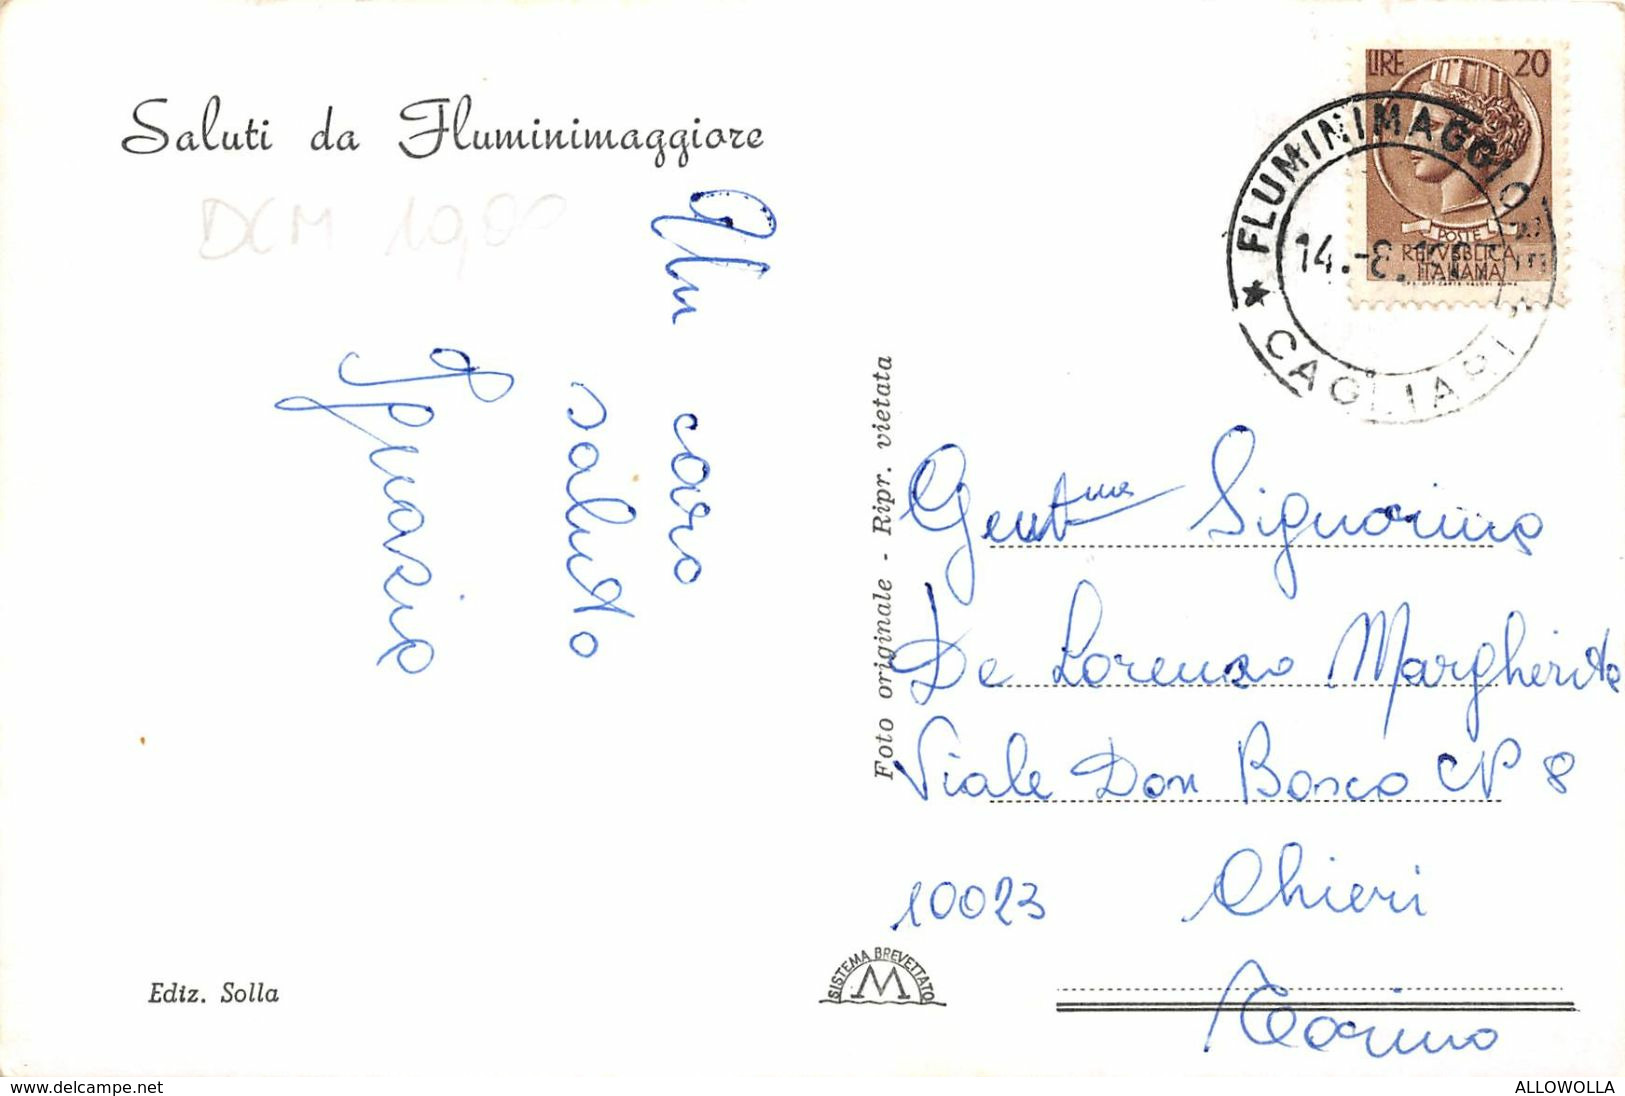 Saluti da Fluminimaggiore
DCM 10,00
Un caro
saluto
Ignazio
Foto originale - Ripr. vietata
LIRE 20
POSTE
REPVBBLICA
ITALIANA
FLUMINIMAGGIORE
14.-8.
★ CAGLIARI
Gent.ma Signorina
De Lorenzo Margherita
Viale Don Bosco CP 8
10023 Chieri
Torino
SISTEMA BREVETTATO
M
Ediz. Solla
www.delcampe.net
ALLOWOLLA